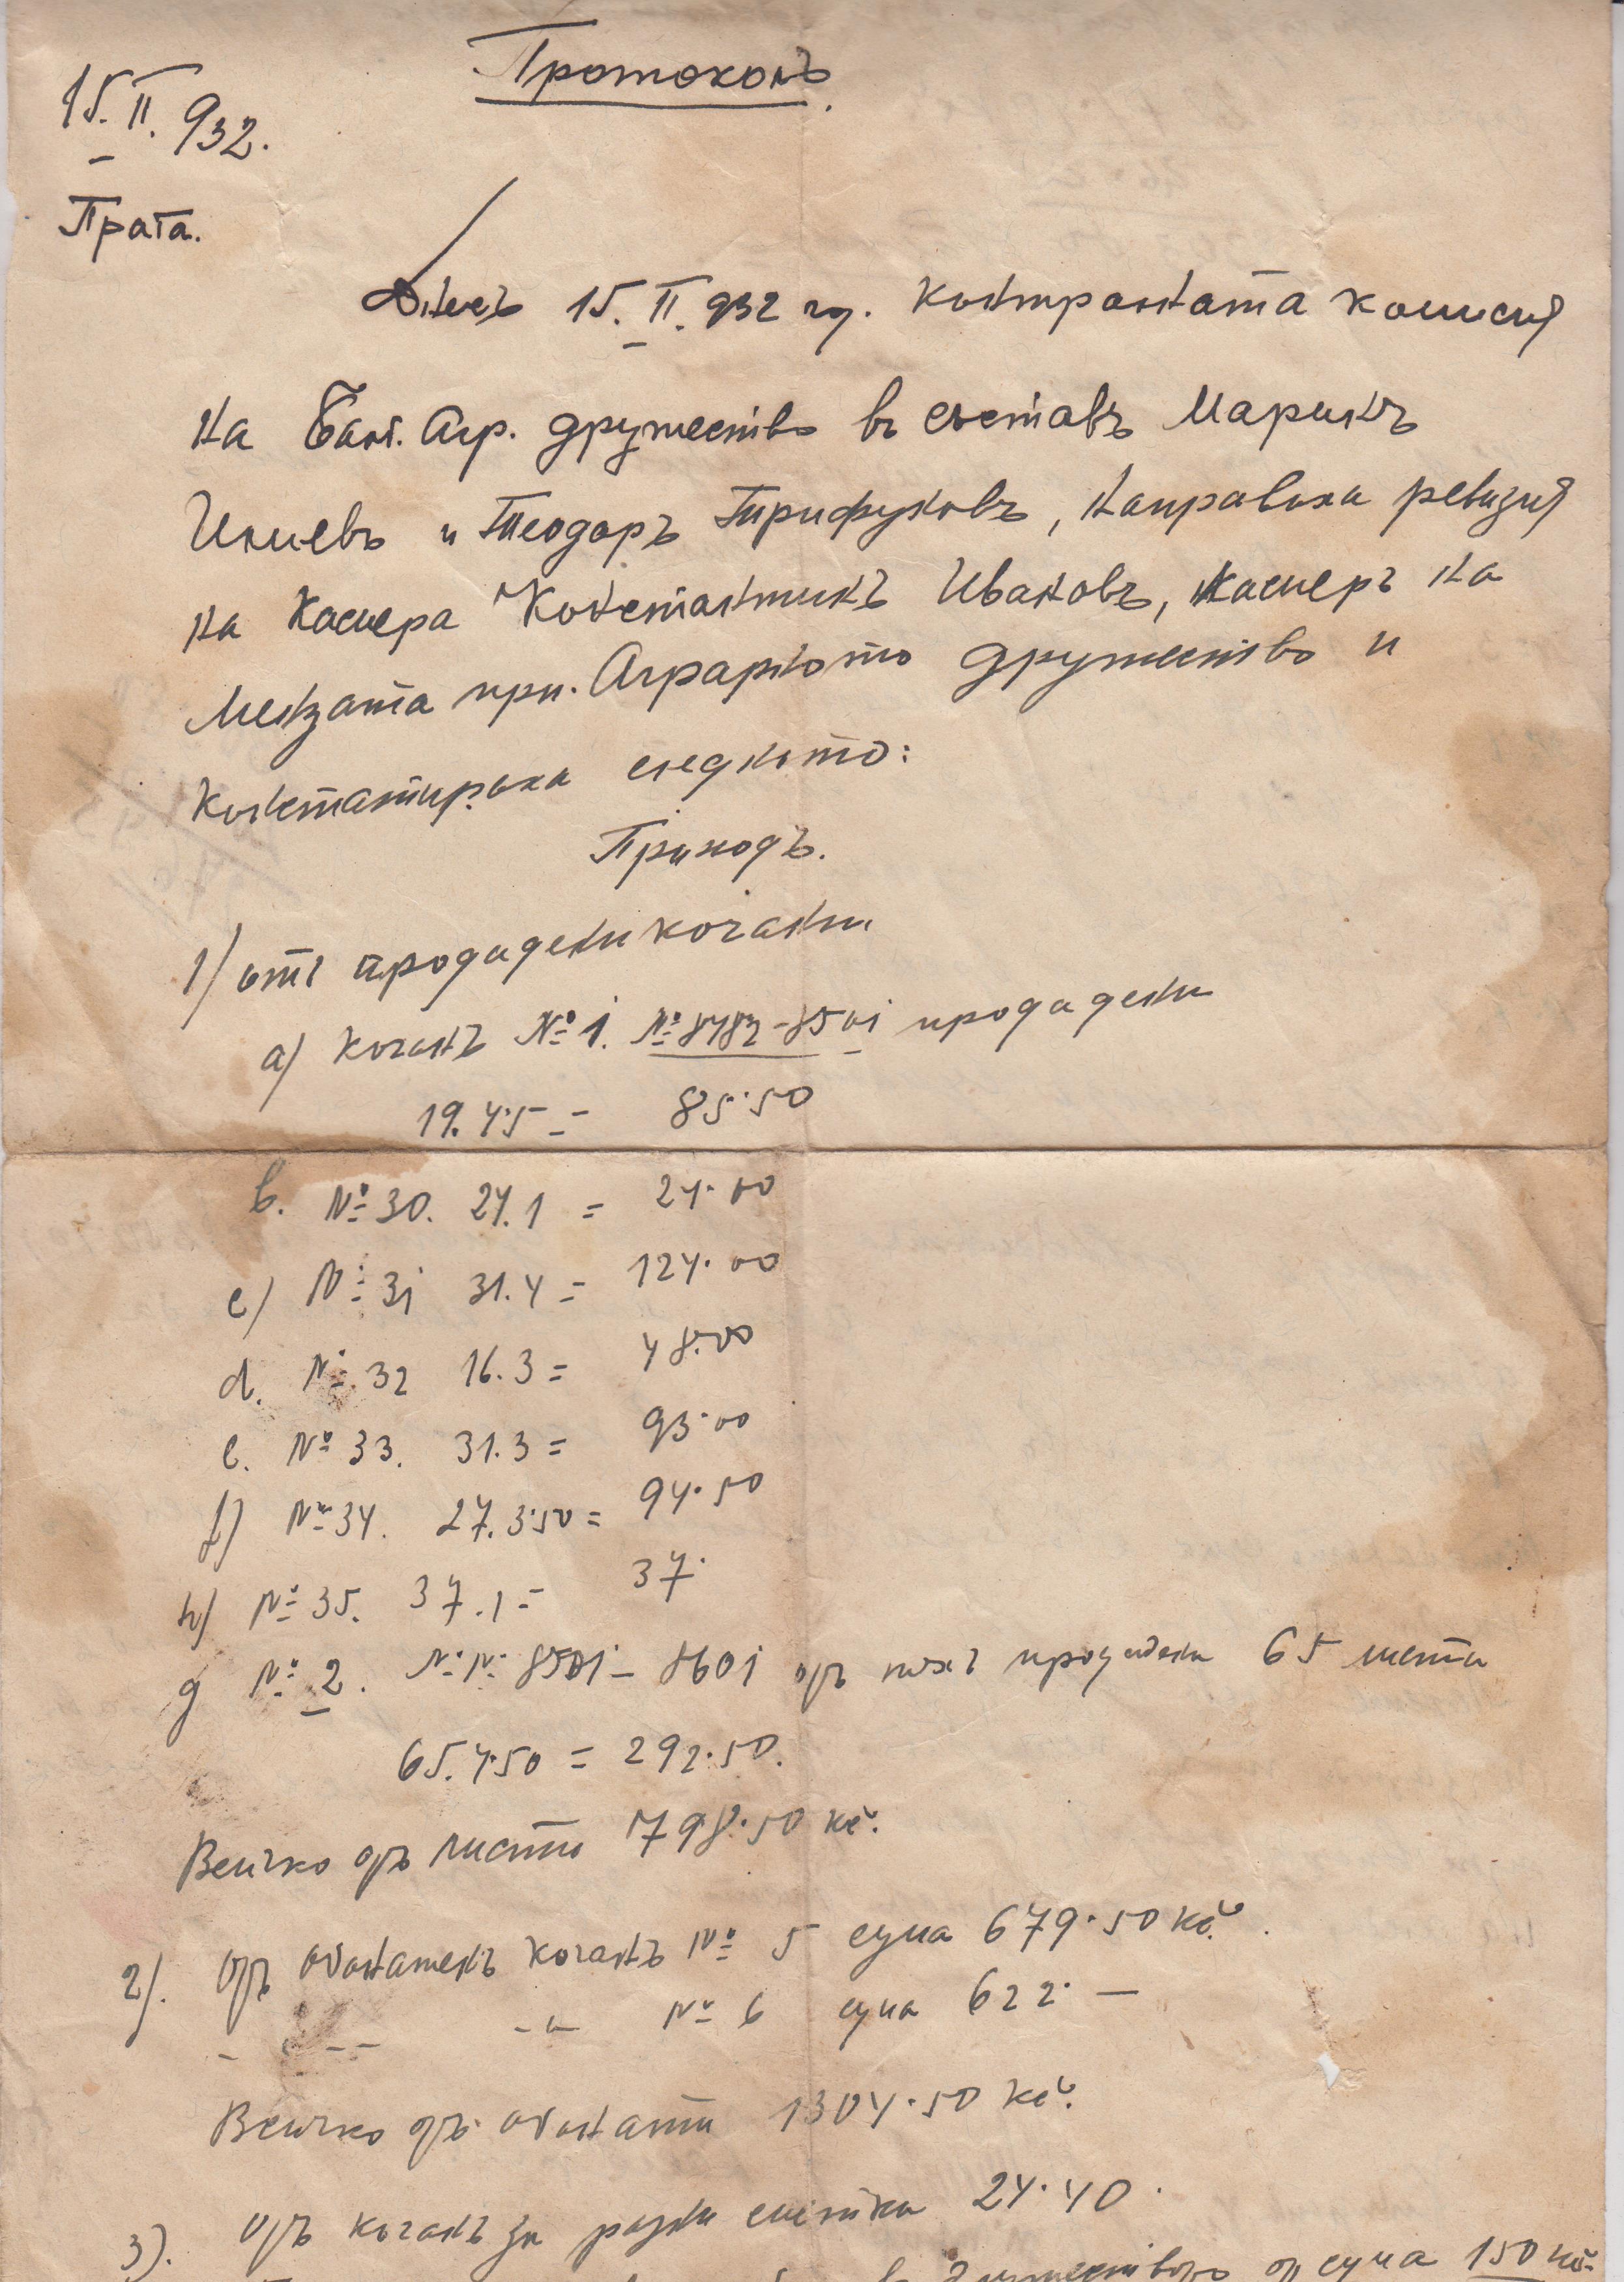 Протоколъ.
15.II.932.
Прага.
Днесъ 15.II.932 год. контролната комисия
на Бълг. Агр. дружество въ съставъ Маринъ
Илиевъ и Теодоръ Трифуновъ, направиха ревизия
на касиера Константинъ Ивановъ, касиеръ на
менzата при. Аграрното дружество и
констатираха следното:
Приходъ.
1/ отъ продадени кочани
a) Кочанъ № 1. № 8482-8501 продадени
19.4·5 = 85·50
b. № 30. 24.1 = 24·00
c) № 31 31.4 = 124·00
d. № 32 16.3 = 48·00
e. № 33. 31.3 = 93·00
f) № 34. 27.3·50 = 94·50
h) № 35. 37.1 = 37·
g № 2. №№ 8501-8601 отъ тяхъ продадени 65 листи
65.4·50 = 292·50.
Всичко отъ листи 798·50 Kč.
2). Отъ абонаменъ кочанъ № 5 сума 679·50 Kč.
№ 6 сума 622·—
Всичко отъ абонати 1304·50 Kč.
3). Отъ кочанъ за разни сметки 24·40.
сума 150 Kč.